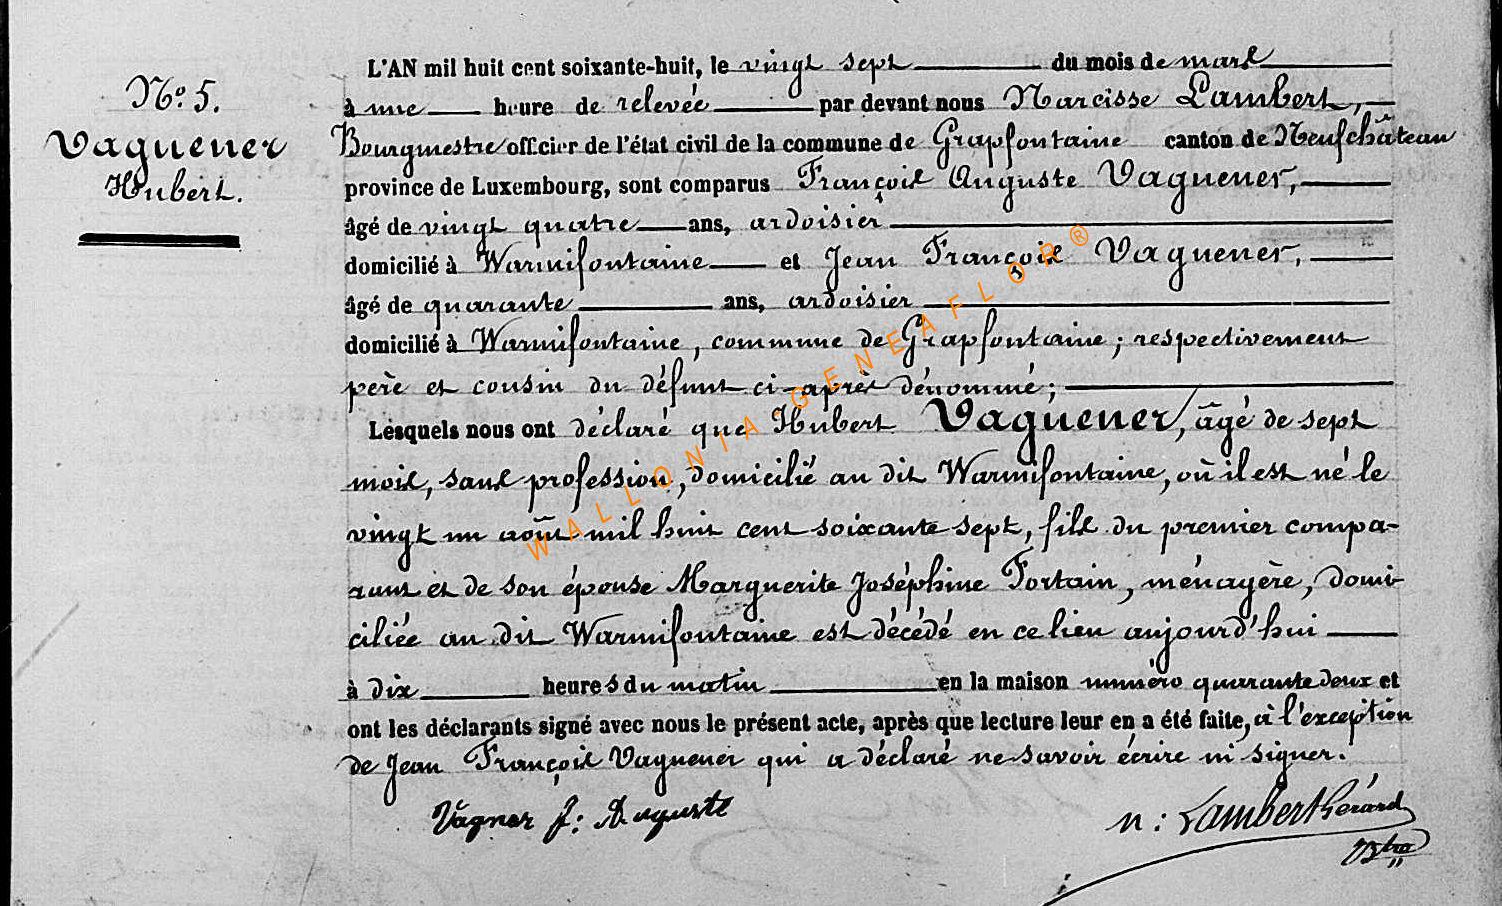 No. 5.
Vaguener
Hubert.
L'AN mil huit cent soixante-huit, le vingt sept du mois de mars
à une heure de relevée par devant nous Narcisse Lambert,
Bourgmestre officier de l'état civil de la commune de Grapfontaine canton de Neufchâteau
province de Luxembourg, sont comparus François Auguste Vaguener,
âgé de vingt quatre ans, ardoisier
domicilié à Warmifontaine et Jean François Vaguener,
âgé de quarante ans, ardoisier
domicilié à Warmifontaine, commune de Grapfontaine; respectivement
père et cousin du défunt ci-après dénommé;
Lesquels nous ont déclaré que Hubert Vaguener, âgé de sept
mois, sans profession, domicilié au dit Warmifontaine, où il est né le
vingt un août mil huit cent soixante sept, fils du premier compa-
rant et de son épouse Marguerite Joséphine Fortain, ménagère, domi-
ciliée au dit Warmifontaine est décédé en ce lieu aujourd'hui
à dix heures du matin en la maison numéro quarante deux et
ont les déclarants signé avec nous le présent acte, après que lecture leur en a été faite, à l'exception
de Jean François Vaguener qui a déclaré ne savoir écrire ni signer.
Vagner f: Auguste
n: Lambert Gérard
Bstre
WALLONIA-GENEAFLOR®